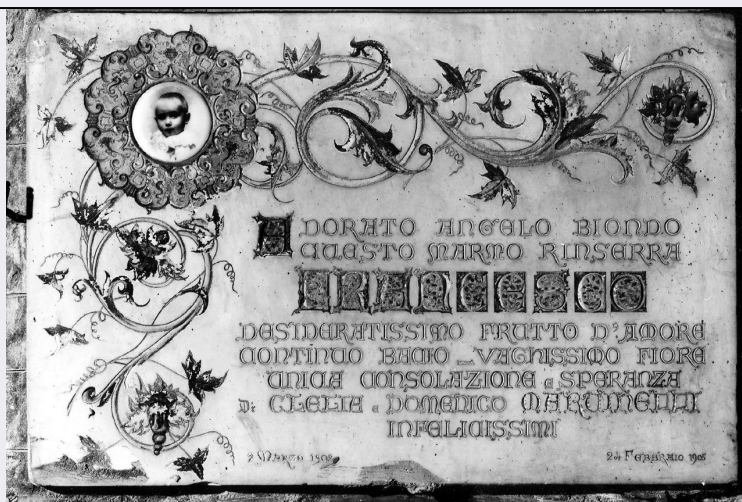 ADORATO ANGELO BIONDO
QUESTO MARMO RINSERRA
FRANCESCO
DESIDERATISSIMO FRUTTO D'AMORE
CONTINUO BACIO _ VAGHISSIMO FIORE
UNICA CONSOLAZIONE e SPERANZA
Di CLELIA e DOMENICO MARTINELLI
INFELICISSIMI
MARZO
24 FEBBRAIO 1905